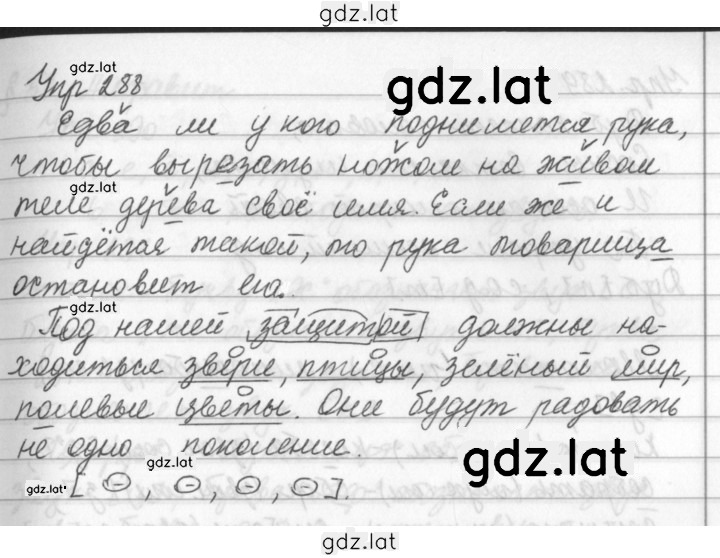 gdz.lat
Упр 288
gdz.lat
gdz.lat
Едва ли у кого поднимется рука,
чтобы вырезать ножом на живом
gdz.lat
теле дерева своё имя. Если же и
найдётся такой, то рука товарища
остановит его.
gdz.lat
Под нашей защитой должны на-
ходиться звери, птицы, зелёный мир,
полевые цветы. Они будут радовать
не одно поколение.
gdz.lat
gdz.lat
gdz.lat
[ , , , ].
gdz.lat